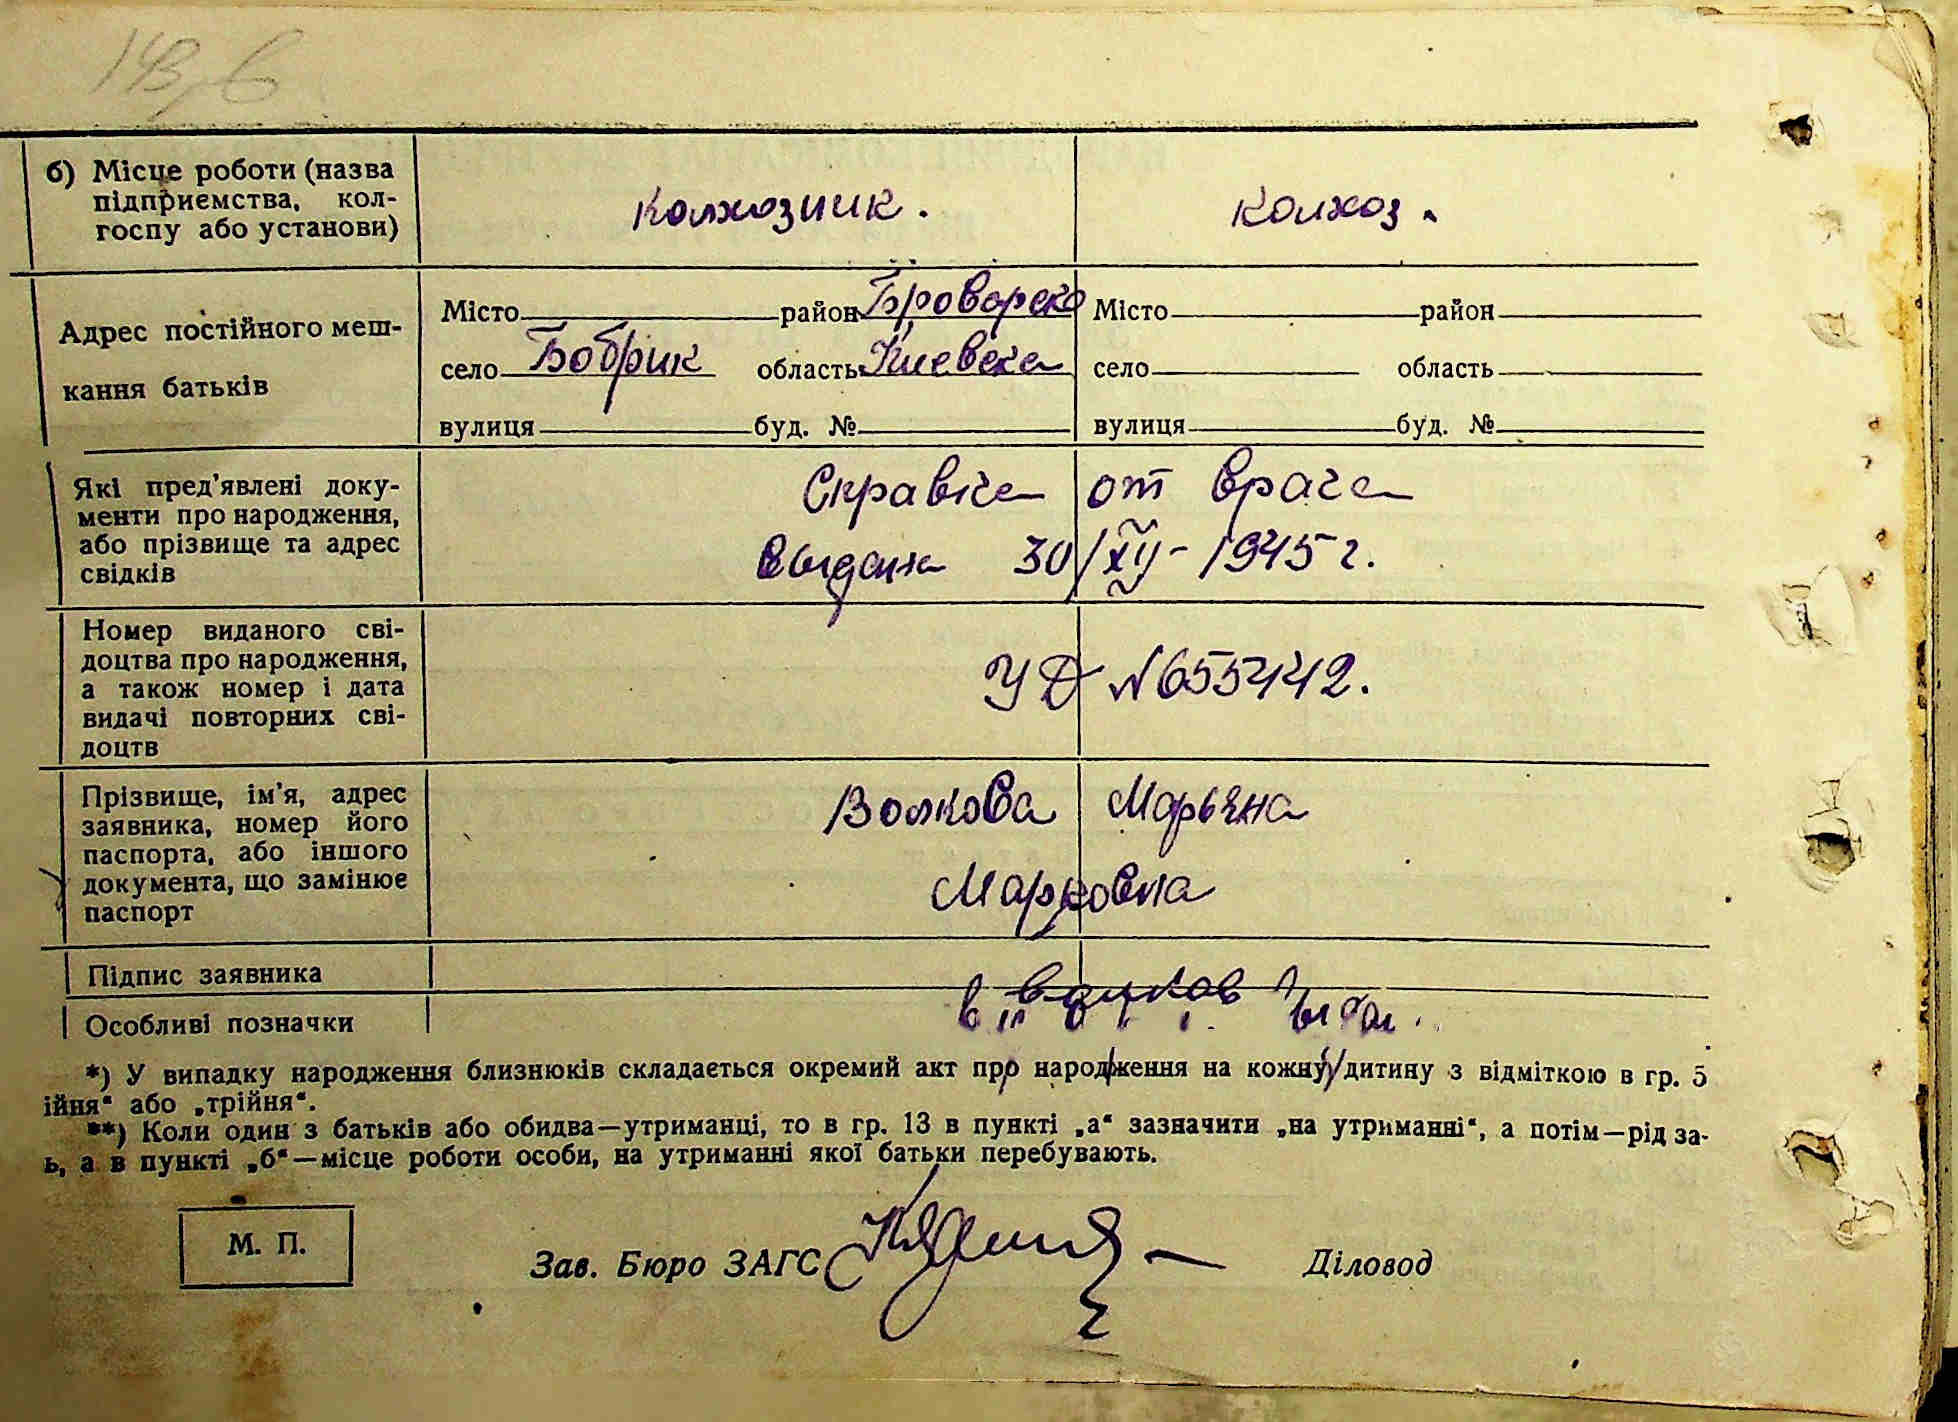 б) Місце роботи (назва
підприємства, кол-
госпу або установи)
колхозник.
колхоз.
Адрес постійного меш-
кання батьків
Місто район Броварско
село Бобрик область Киевска
вулиця буд. №
Місто район
село область
вулиця буд. №
Які пред'явлені доку-
менти про народження,
або прізвище та адрес
свідків
Справка от врача
выдана 30/XII-1945г.
Номер виданого сві-
доцтва про народження,
а також номер і дата
видачі повторних сві-
доцтв
УД №655442.
Прізвище, ім'я, адрес
заявника, номер його
паспорта, або іншого
документа, що замінює
паспорт
Волкова Марьяна
Марковна
Підпис заявника
Особливі позначки
*) У випадку народження близнюків складається окремий акт про народження на кожну дитину з відміткою в гр. 5
ійня“ або „трійня“.
**) Коли один з батьків або обидва—утриманці, то в гр. 13 в пункті „а“ зазначити „на утриманні“, а потім—рід за-
ь, а в пункті „б“—місце роботи особи, на утриманні якої батьки перебувають.
М. П.
Зав. Бюро ЗАГС
Діловод